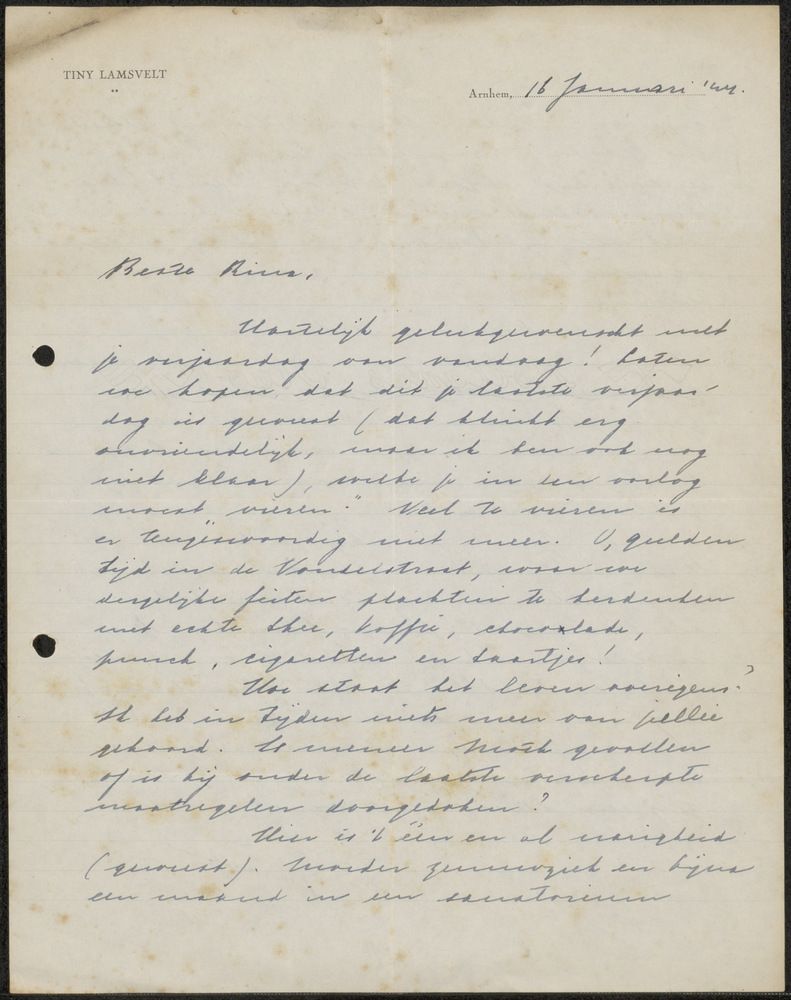 TINY LAMSVELT
Arnhem, 16 Januari '44.
Beste Rina,
Hartelijk gelukgewenscht met
je verjaardag van vandaag! Laten
we hopen, dat dit je laatste verjaar-
dag is geweest (dat klinkt erg
onvriendelijk, maar ik ben ook nog
niet klaar), welke je in een oorlog
moest "vieren". Veel te vieren is
er tengeswoordig niet meer. O, gulden
tijd in de Vondelstraat, waar we
dergelijke feiten plachten te herdenken
met echte thee, koffie, chocolade,
punch, cigaretten en taartjes!
Hoe staat het leven overigens?
Ik heb in tijden niets meer van jellie
gehoord. Is meneer Mosk gevallen
of is hij onder de laatste verscherpte
maatregelen doorgedoken?
Hier is 't één en al narigheid
(geweest). Moeder zenuwziek en bijna
een maand in een sanatorium